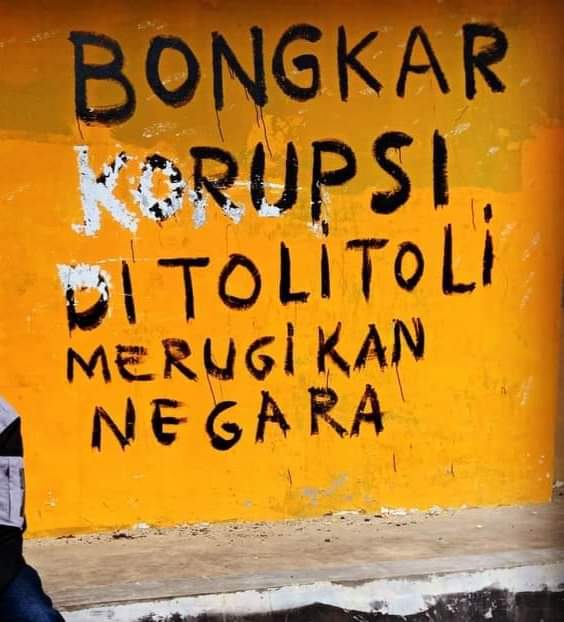 BONGKAR
KORUPSI
DI TOLITOLI
MERUGIKAN
NEGARA